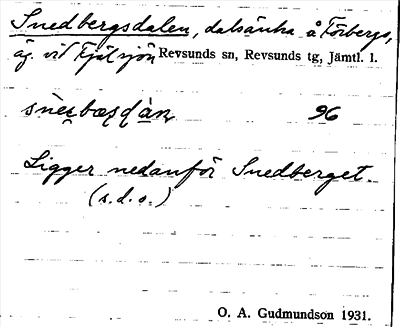 Snedbergsdalen, dalsänka å Förbergs,
äg. vid Fjälsjön Revsunds sn, Revsunds tg, Jämtl. l.
96
Ligger nedanför Snedberget.
(s.d.o.)
O. A. Gudmundson 1931.